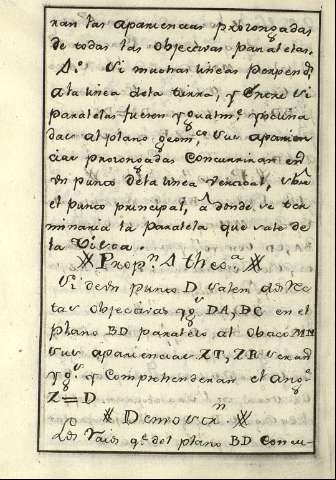 ran las apariencias prorongadas
de todas las objectivas paralelas.
A.º Si muchas lineas perpend.
a la linea dela tierra, y entre si
paralelas fueren y gualm.e yncuna
das al plano geom.co sus aparien
cias prorongadas concurriran en
vn punto dela linea vertical,
el punto principal, á donde se ter
minaria la paralela que sale de
la Vista.
Prop.n A theo.a
Si de vn punto D salen dos Rec
tas objectivas yg.s DA, DC en el
plano BD paralelo al obaco MN
sus apariencias ZT, ZR seran
yg.s y comprehenderan el ang.o
Z=D
Demostr.n
Los raios q.e del plano BD concu-